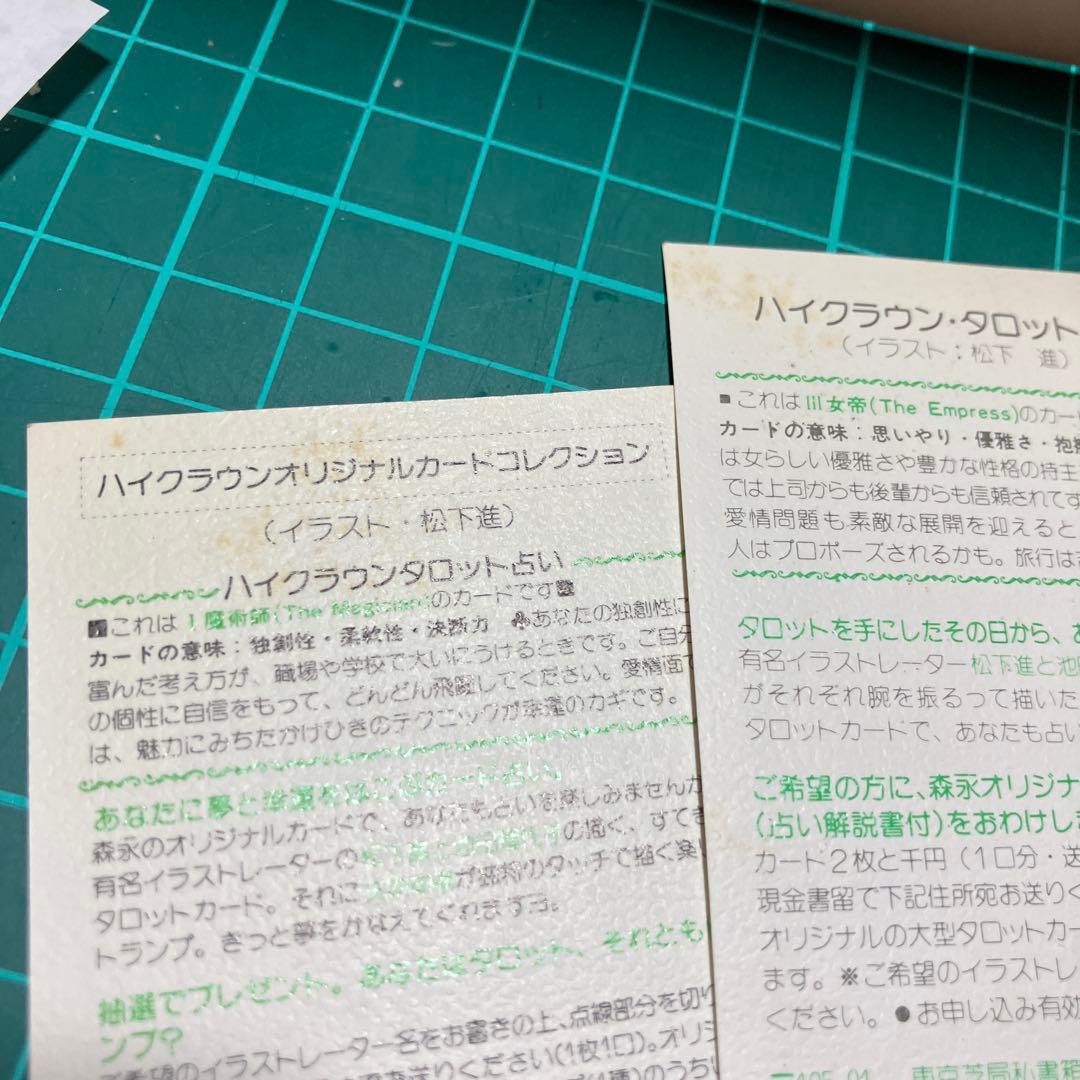 ハイクラウンオリジナルカードコレクション
(イラスト・松下進)
ハイクラウンタロット占い
これは I 魔術師(The Magician)のカードです
カードの意味:独創性・柔軟性・決断力 ♣あなたの独創性に
富んだ考え方が、職場や学校で大いにうけるときです。ご自分
の個性に自信をもって、どんどん飛躍してください。愛情面で
は、魅力にみちたかけひきのテクニックが幸運のカギです。
あなたに夢と幸運をはこぶカード占い
森永のオリジナルカードで、あなたも占いを楽しみませんか
有名イラストレーターの の描く、すてき
タロットカード。それに が独特のタッチで描く楽し
トランプ。きっと夢をかなえてくれますヨ。
抽選でプレゼント。あなたはタロット、それとも
ンプ?
ご希望のイラストレーター名をお書きの上、点線部分を切り
お送りください(1枚1口)。オリジ
のうち
ハイクラウン・タロット
(イラスト:松下 進)
■これはIII女帝(The Empress)のカー
カードの意味:思いやり・優雅さ・抱擁
は女らしい優雅さや豊かな性格の持主
では上司からも後輩からも信頼されてす
愛情問題も素敵な展開を迎えると
人はプロポーズされるかも。旅行は
タロットを手にしたその日から、
有名イラストレーター松下進と池
がそれぞれ腕を振るって描いた
タロットカードで、あなたも占い
ご希望の方に、森永オリジナ
(占い解説書付)をおわけしま
カード2枚と千円(1口分・送
現金書留で下記住所宛お送りく
オリジナルの大型タロットカー
ます。※ご希望のイラストレ
ください。●お申し込み有効
〒105-01 東京芝局私書箱